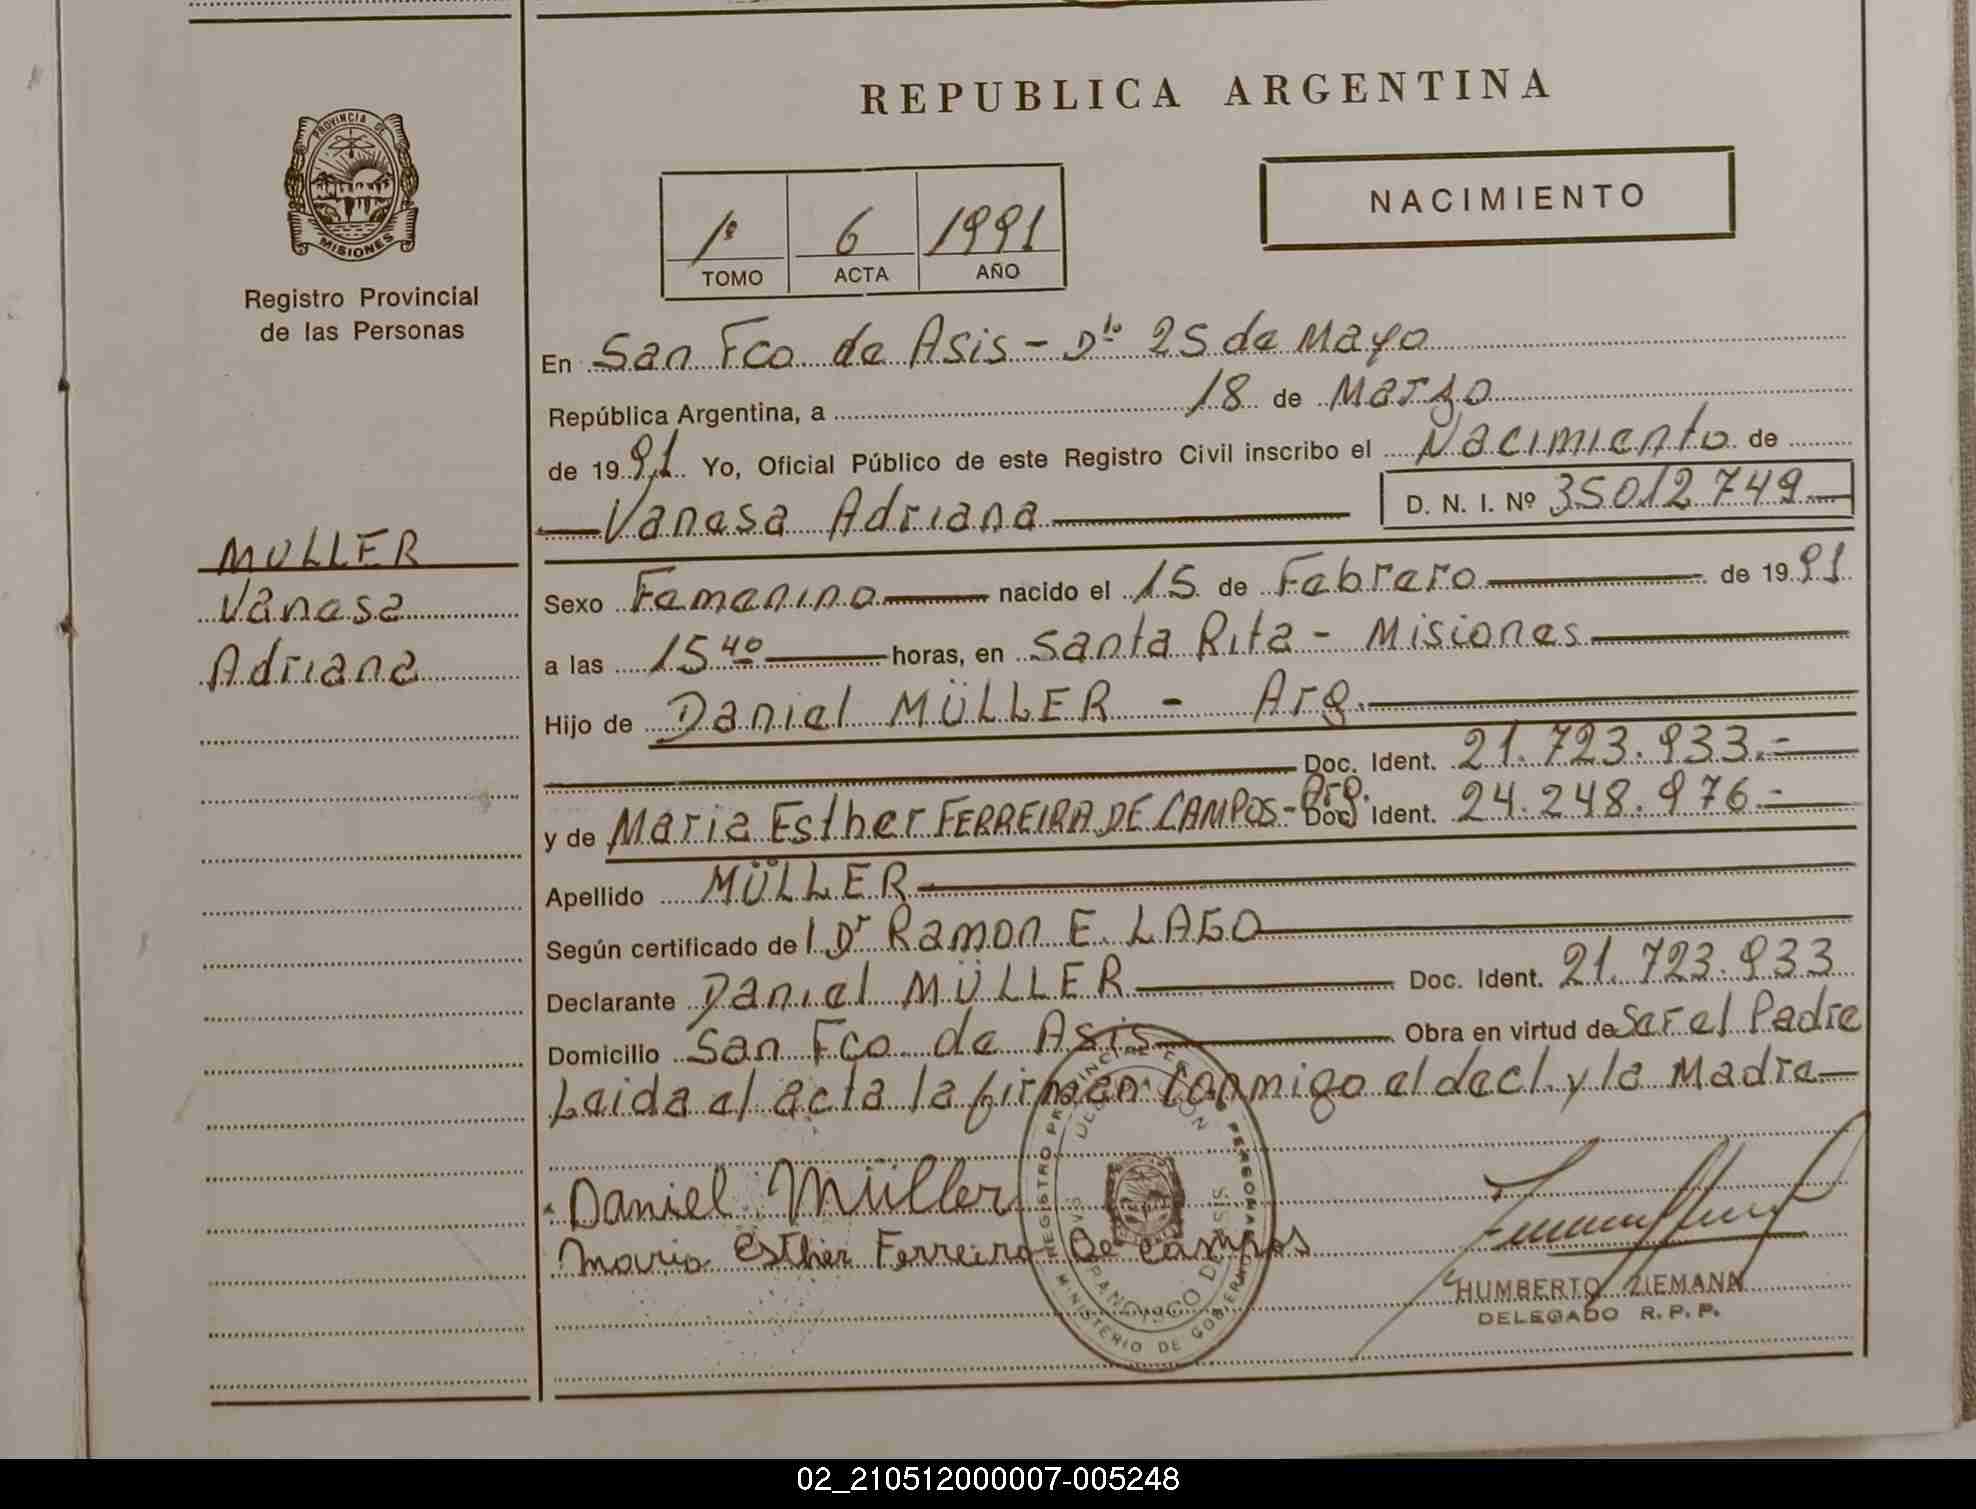 REPUBLICA ARGENTINA
PROVINCIA DE
MISIONES
Registro Provincial
de las Personas
NACIMIENTO
1º 6 1991
TOMO ACTA AÑO
En San Fco de Asis - Dto 25 de Mayo
República Argentina, a 18 de Marzo
de 1991 Yo, Oficial Público de este Registro Civil inscribo el Nacimiento de
Vanesa Adriana D. N. I. Nº 35012749
MULLER
Vanesa
Adriana
Sexo Femenino nacido el 15 de Febrero de 1991
a las 15 40 horas, en Santa Rita - Misiones
Hijo de Daniel MÜLLER - Arg.
Doc. Ident. 21.723.933.-
y de Maria Esther FERREIRA DE CAMPOS - Arg. Doc. Ident. 24.248.976.-
Apellido MÜLLER
Según certificado del Dr Ramon E. LAGO
Declarante Daniel MÜLLER Doc. Ident. 21.723.933
Domicilio San Fco de Asis Obra en virtud de Ser el Padre
Leida el acta la firman conmigo el decl. y la Madre
Daniel Müller
Maria Esther Ferreira De Campos
REGISTRO PROVINCIAL DE PERSONAS
FRANCISCO DE ASIS
MINISTERIO DE GOBIERNO
HUMBERTO ZIEMANN
DELEGADO R. P. P.
02_210512000007-005248